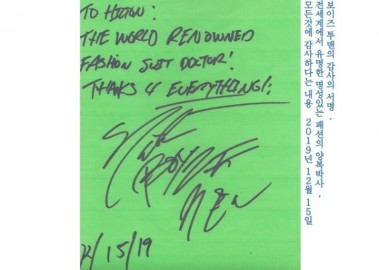 TO HILTON:
THE WORLD RENOWNED
FASHION SUIT DOCTOR!
THANKS 4 EVERYTHING!:
BOYZ II
MEN
12/15/19
보이즈 투맨의 감사의 서명 .
전세계에서 유명한 명성있는 패션의 양복박사 ,
모든것에 감사하다는 내용 2019년 12월 15일